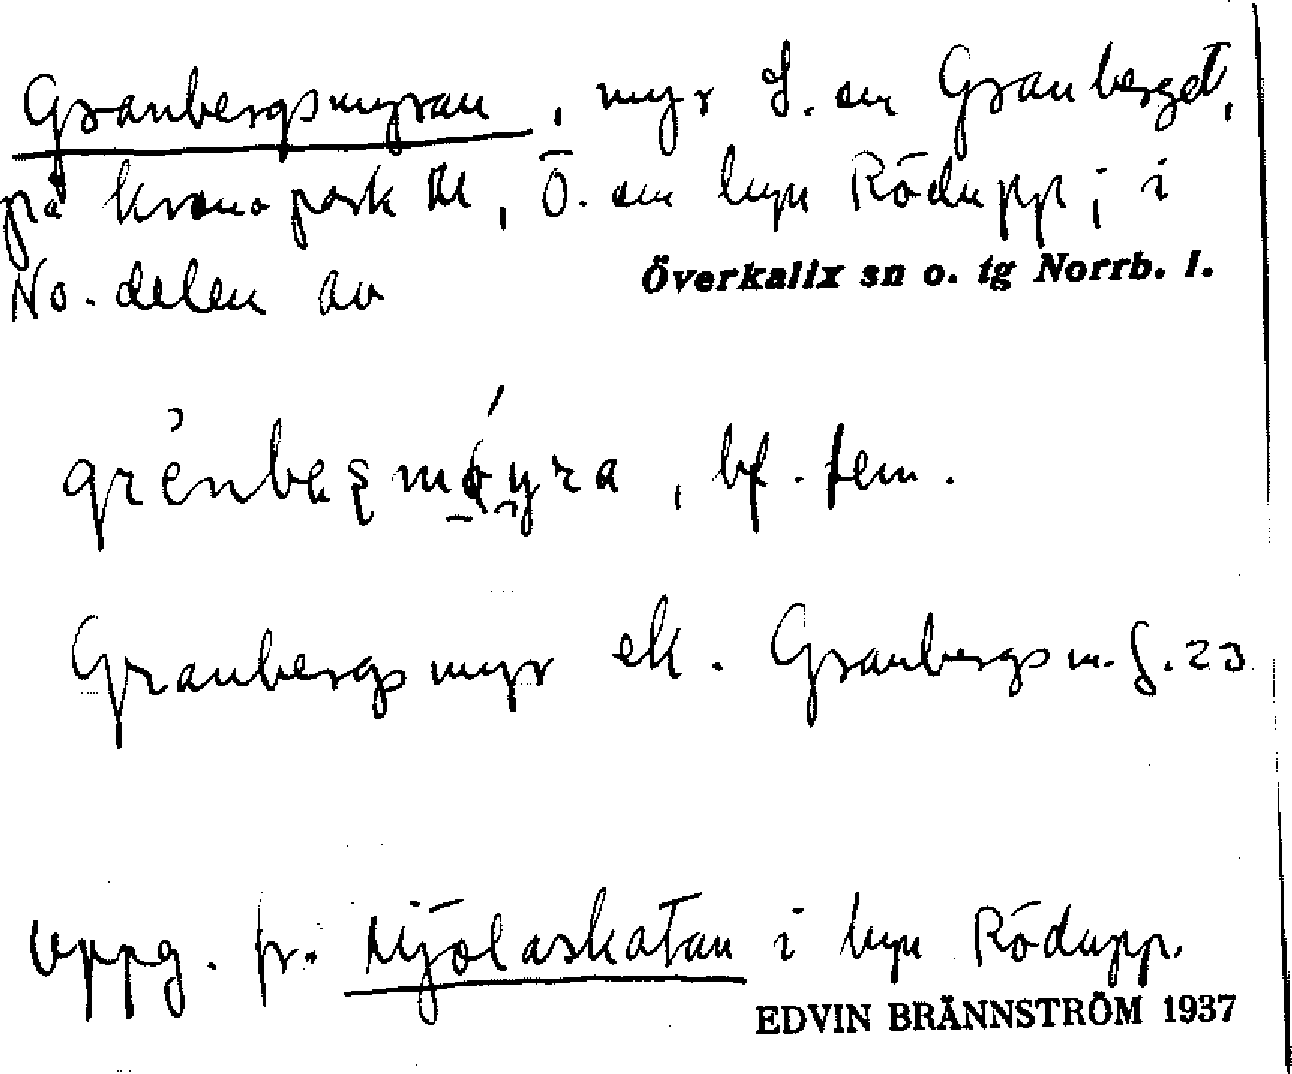 Granbergsmyran, myr S. om Granberget,
på kronopark III, Ö. om byn Rödupp; i
No. delen av Överkalix sn o. tg Norrb. l.
bf. fem.
Granbergsmyr ek. Granbergsm. S. 23
Uppg. fr. Mjölaskatan i byn Rödupp.
EDVIN BRÄNNSTRÖM 1937